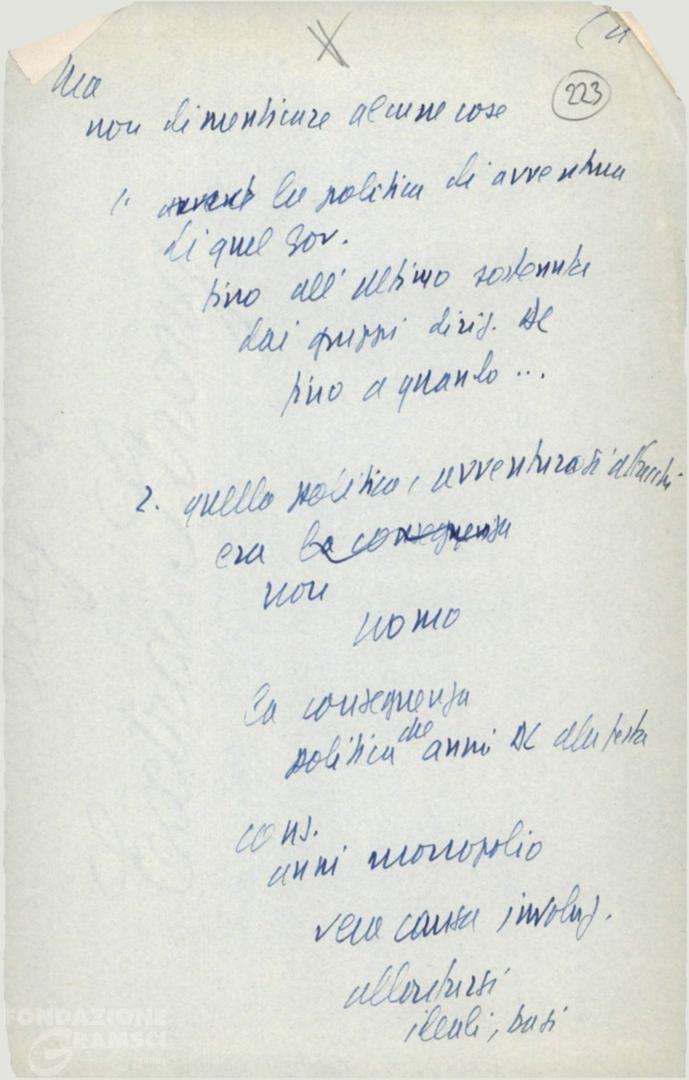 Ma
223
non dimenticare alcune cose
1. la politica di avventura
di quel gov.
fino all'ultimo sostenuta
dai gruppi dirig. DC
fino a quando ...
2. quella politica, avventurosa,
era la conseguenza
non
uomo
la conseguenza
politica che anni DC alla testa
cons.
anni monopolio
vera causa involuz.
allontanarsi
ideali, basi
FONDAZIONE
GRAMSCI